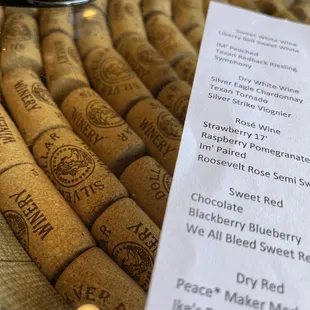 Sweet White Wine
Liberty Bell Sweet White
Im' Peached
Texan Redback Riesling
Symphony
Dry White Wine
Silver Eagle Chardonnay
Texan Tornado
Silver Strike Viognier
Rosé Wine
Strawberry 17'
Raspberry Pomegranate
Im' Paired
Roosevelt Rose Semi Sw
Sweet Red
Chocolate
Blackberry Blueberry
We All Bleed Sweet Re
Dry Red
Peace* Maker Med
Ike's
WINERY
WINERY
WINERY
WINERY